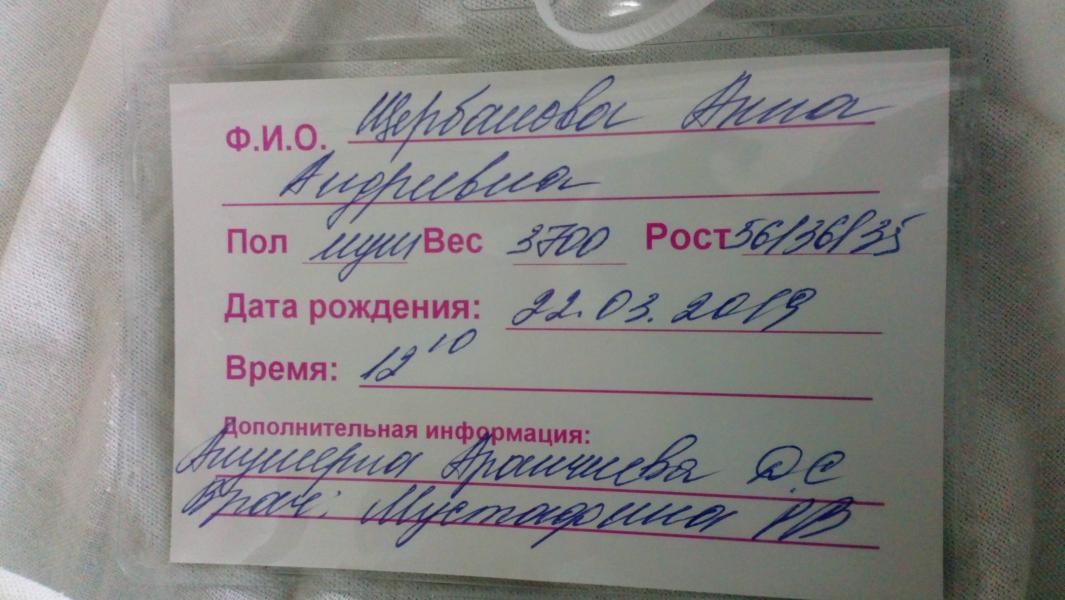 Ф.И.О. Щербакова Анна
Андреевна
Пол муж Вес 3700 Рост 56/36/35
Дата рождения: 22.03.2019
Время: 12 10
Дополнительная информация:
Акушерка ДС
Врач: Мустафина РВ